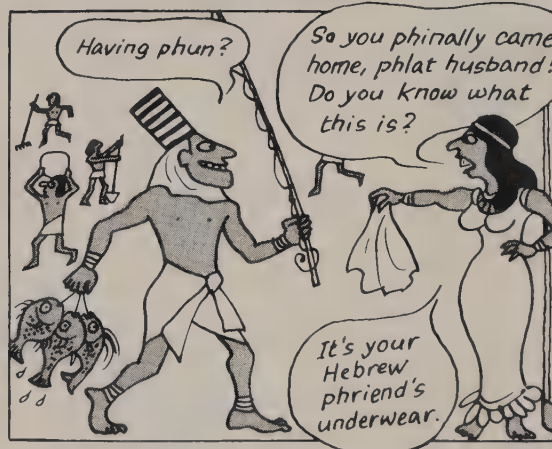 Having phun?
So you phinally came
home, phlat husband!
Do you know what
this is?
It's your
Hebrew
phriend's
underwear.